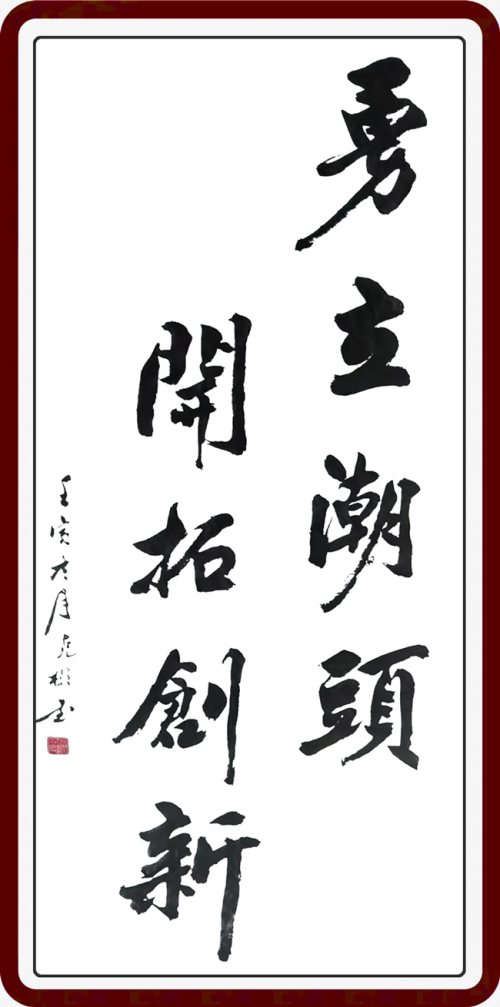 勇立潮頭
開拓創新
壬寅冬月